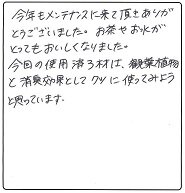 今年もメンテナンスに来て頂きありが
とうございました。お茶やお水が
とってもおいしくなりました。
今回の使用済ろ材は、観葉植物
と消臭効果としてクツに使ってみよう
と思っています。